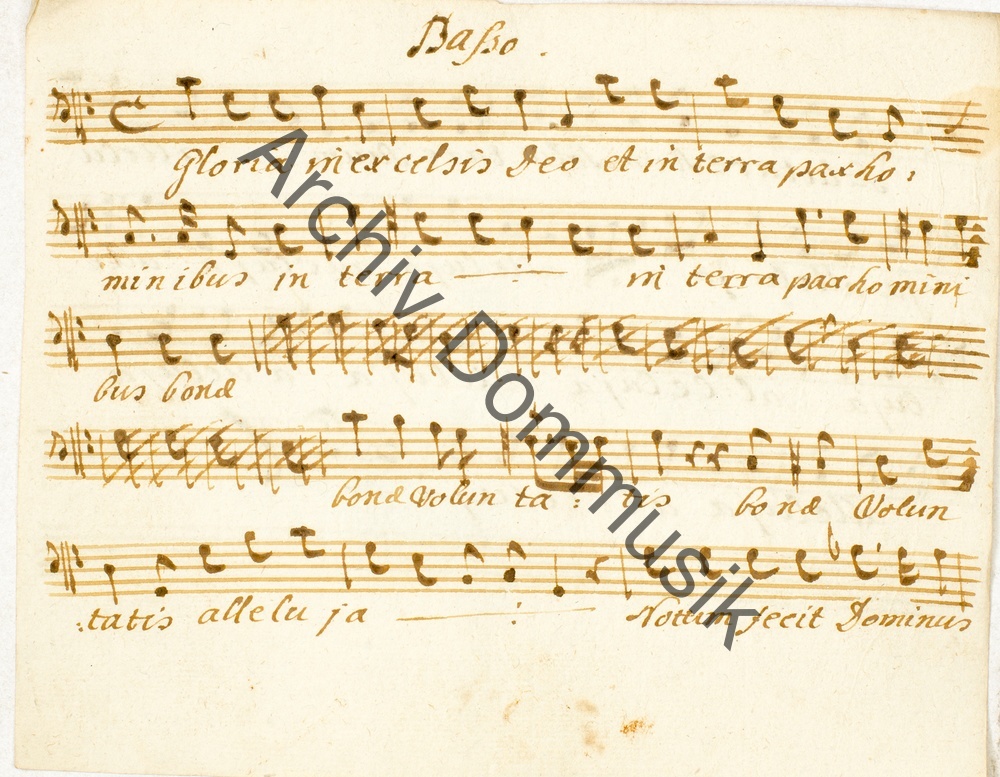 Basso.
Gloria in excelsis Deo et in terra pax ho:
minibus in terra —:— in terra pax homini
bus bonæ
bonæ Volun ta: tis bonæ Volun
:tatis alleluja —:— Nottum fecit Dominus
Archiv Dommusik